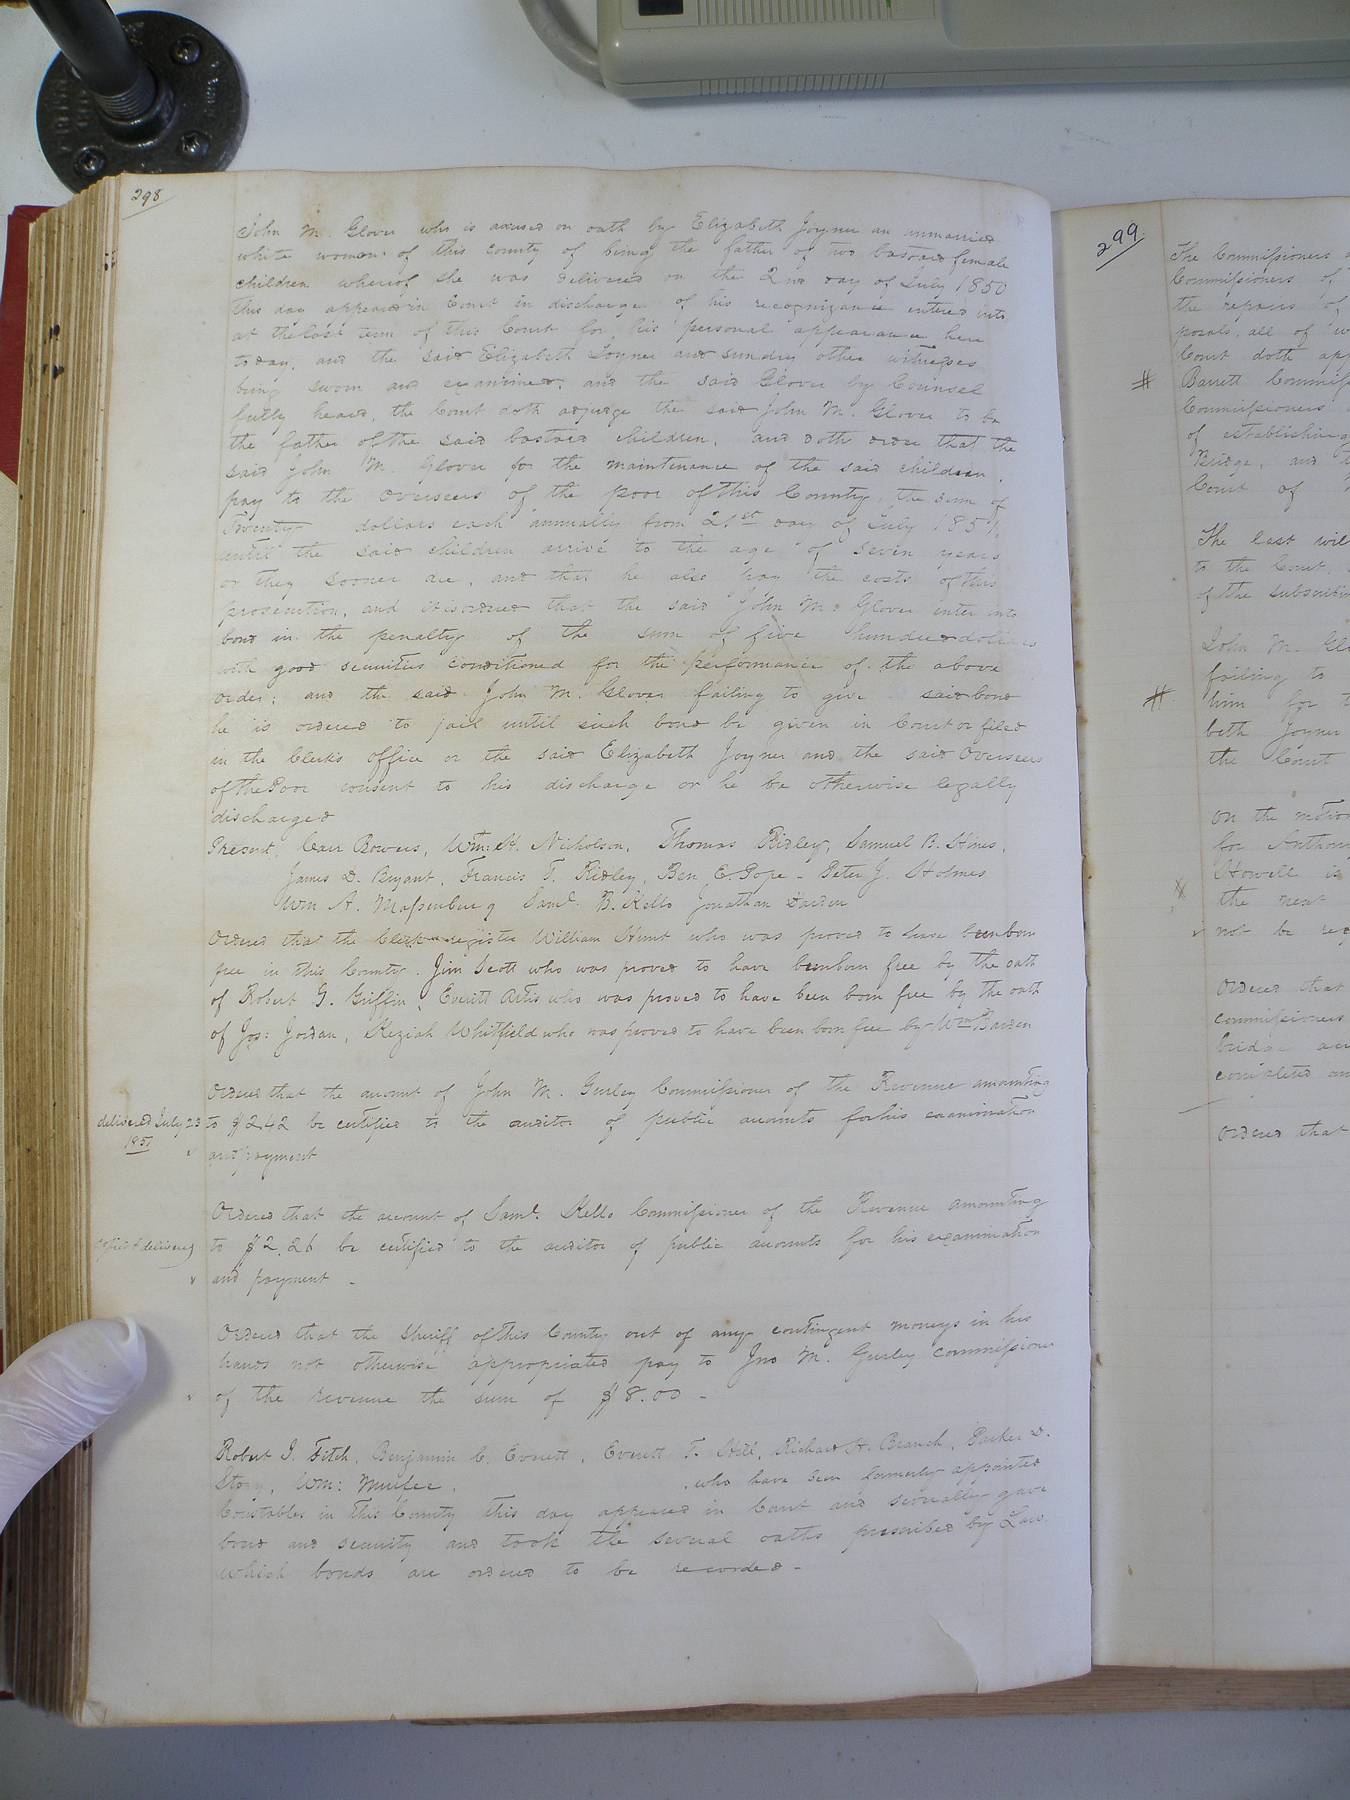 298
John M. Glover who is accused on oath by Elizabeth Joyner an unmarried
white woman of this county of being the father of two bastard female
children whereof she was delivered on the 2nd day of July 1850
this day appeared in Court in discharge of his recognizance entered into
at the last term of this Court for his personal appearance here
to day, and the said Elizabeth Joyner and sundry other witnesses
being sworn and examined, and the said Glover by Counsel
fully heard, the Court doth adjudge the said John M. Glover to be
the father of the said bastard children, and doth order that the
said John M. Glover for the maintenance of the said children,
pay to the overseers of the poor of this County, the sum of
Twenty dollars each annually from 21st day of July 1851,
until the said children arrive to the age of seven years
or they sooner die, and that he also pay the costs of this
prosecution, and it is ordered that the said John M. Glover enter into
bond in the penalty of the sum of five hundred dollars
with good securities conditioned for the performance of the above
order; and the said John M. Glover failing to give said bond
he is ordered to jail until such bond be given in Court or filed
in the Clerks office or the said Elizabeth Joyner and the said Overseers
of the Poor consent to his discharge or he be otherwise legally
discharged
Present, Carr Bowers, Wm: H. Nicholson, Thomas Ridley, Samuel B. Hines,
James D. Bryant, Francis T. Ridley, Ben E Pope - Peter J. Holmes
Wm A. Massenburg Saml. B. Kello Jonathan Darden
Ordered that the Clerk register William Hunt who was proved to have been born
free in this County. Jim Scott who was proved to have been born free by the oath
of Robert G. Griffin, Everitt Artis who was proved to have been born free by the oath
of Jos: Jordan, Keziah Whitfield who was proved to have been born free by Wm Barden
Ordered that the amount of John M. Gurley Commissioner of the Revenue amounting
delivered July 23
1851
to $242 be certified to the auditor of public accounts for his examination
and payment
Ordered that the account of Saml. Kello Commissioner of the Revenue amounting
& delivered
to $2,26 be certified to the auditor of public accounts for his examination
and payment -
Ordered that the Sheriff of this County out of any contingent moneys in his
hands not otherwise appropriated pay to Jno M. Gurley Commissioner
of the revenue the sum of $8.00 -
Robert J. Fitch, Benjamin C. Everett, Everett T. Hill, Richard H. Branch, Parker D.
Story, Wm: . who have been formerly appointed
Constables in this County this day appeared in Court and severally gave
bond and security and took the several oaths prescribed by Law
which bonds are ordered to be recorded -
299.
The Commissioners
Commissioners of
the repairs of
posals, all of
Court doth
# Barrett
Commissioners
of establishing
Bridge, and
Court of
The last
to the Court,
of the
John M.
failing to
# him for
beth Joyner
the Court
On the
for
Howell is
the next
not be
Ordered that
commissioners
Ordered that